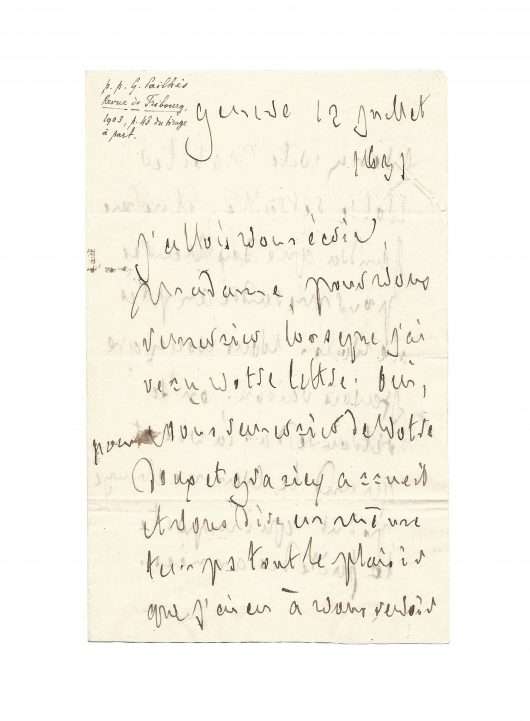 p. p. G. Pailhès
Revue de Fribourg,
1903, p. 48 du tirage
à part.
Genève 12 juillet
J'allois vous écrire,
Madame, pour vous
remercier lorsque j'ai
reçu votre lettre. Oui,
pour vous remercier de votre
doux et gracieux accueil
et vous dire en même
temps tout le plaisir
que j'ai eu à vous revoir